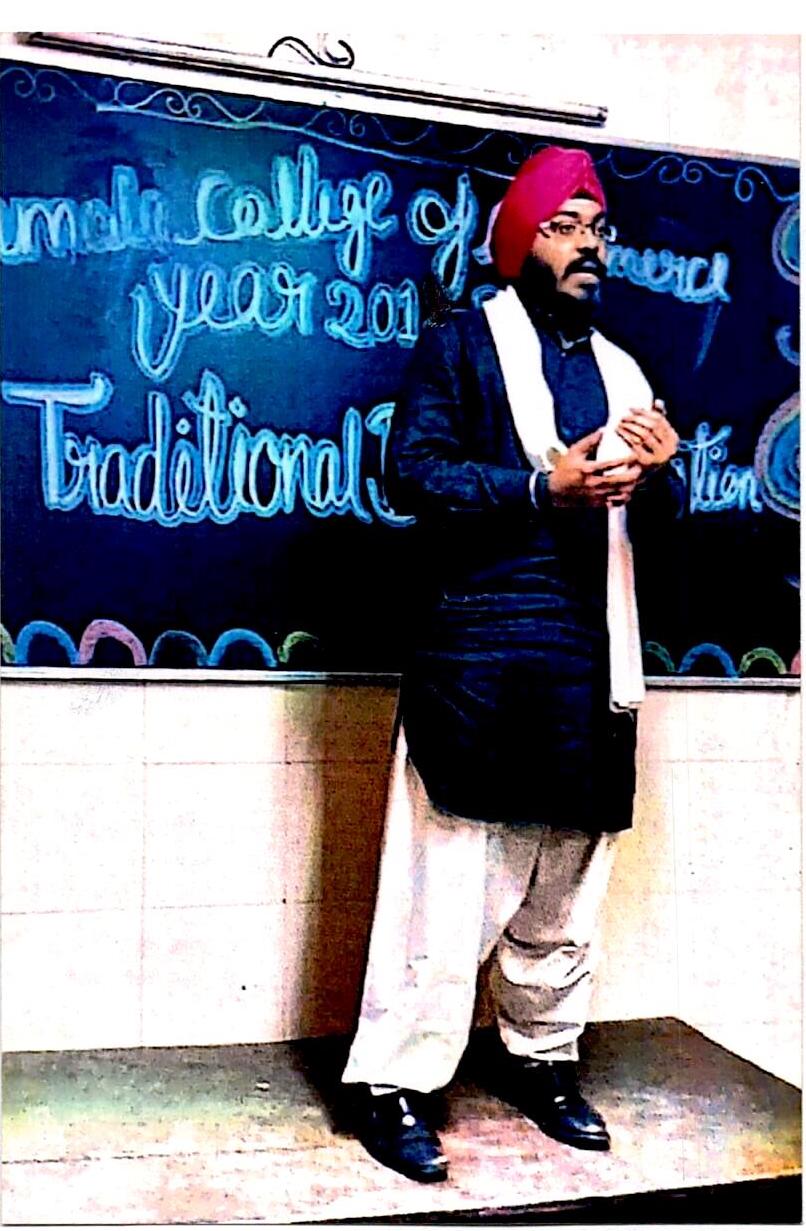 mala College of merce
year 201
Traditional